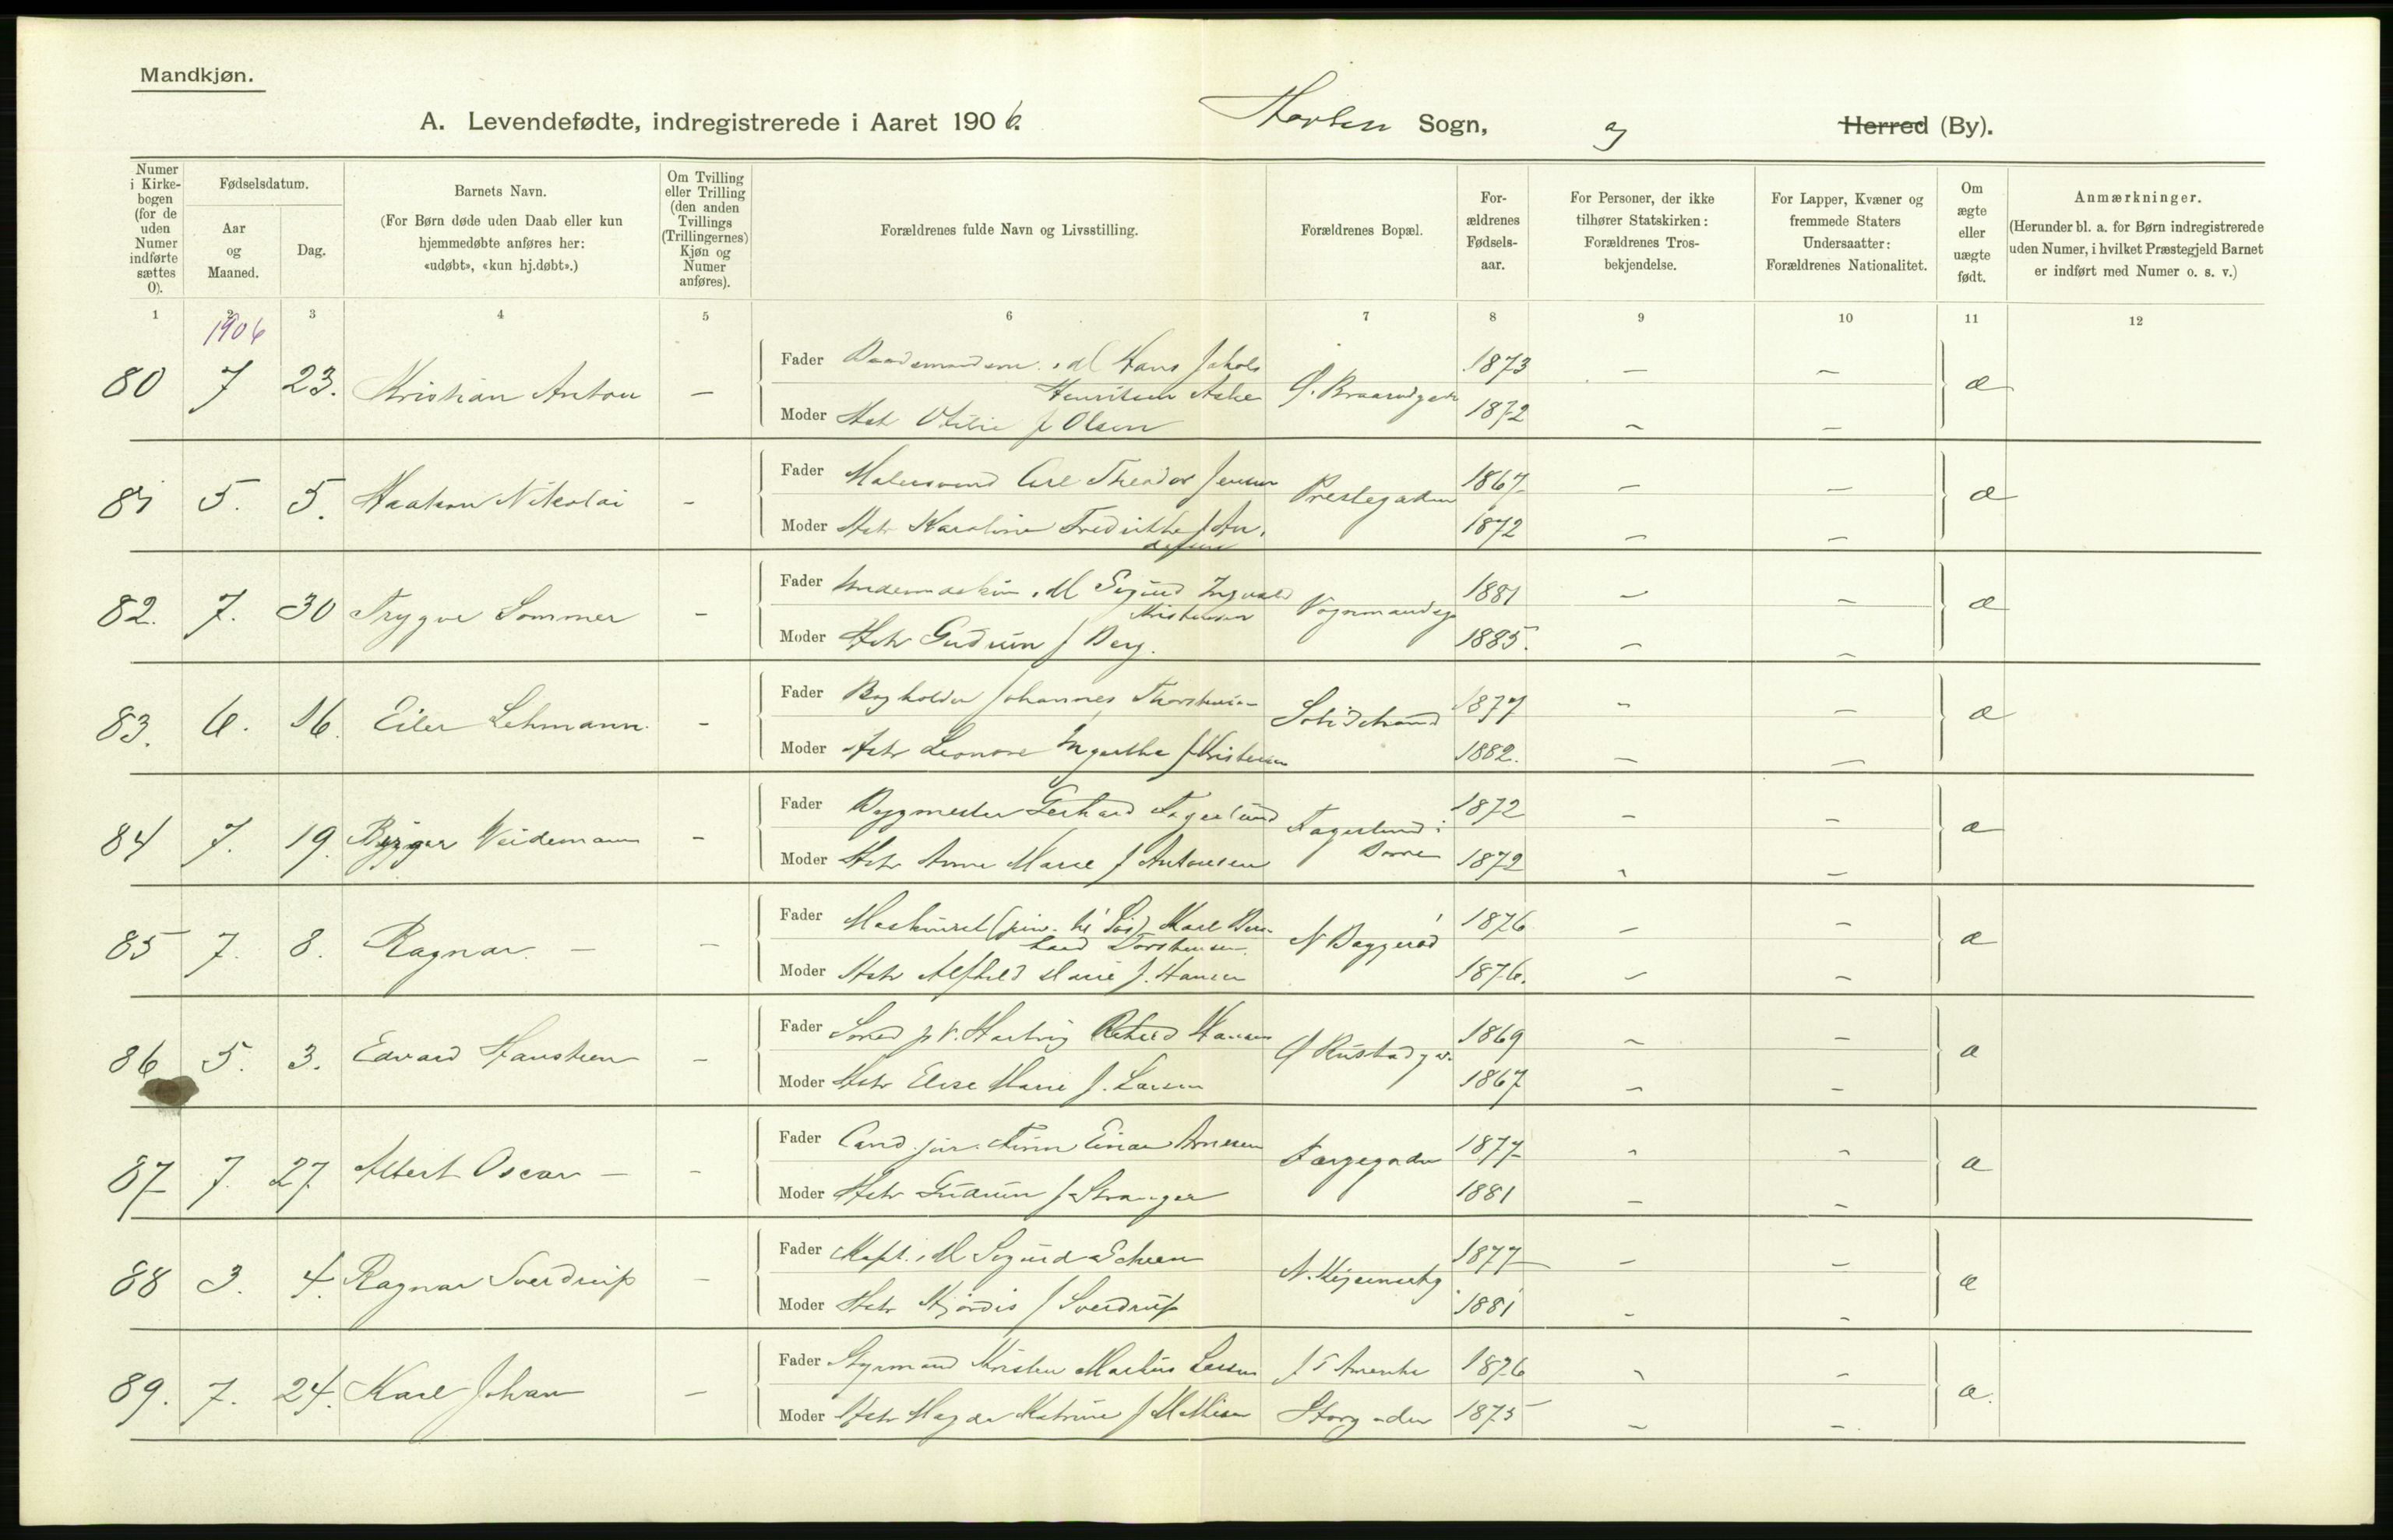 Mandkjøn.
A. Levendefødte, indregistrerede i Aaret 1906. Horten Sogn, og Herred (By).
Numer i Kirkebogen (for de uden Numer indførte sættes 0).
Fødselsdatum.
Aar og Maaned.
Dag.
Barnets Navn.
(For Børn døde uden Daab eller kun hjemmedøbte anføres her: «udøbt», «kun hj.døbt».)
Om Tvilling eller Trilling (den anden Tvillings (Trillingernes) Kjøn og Numer anføres).
Forældrenes fulde Navn og Livsstilling.
Forældrenes Bopæl.
Forældrenes Fødselsaar.
For Personer, der ikke tilhører Statskirken: Forældrenes Trosbekjendelse.
For Lapper, Kvæner og fremmede Staters Undersaatter: Forældrenes Nationalitet.
Om ægte eller uægte født.
Anmærkninger.
(Herunder bl. a. for Børn indregistrerede uden Numer, i hvilket Præstegjeld Barnet er indført med Numer o. s. v.)
1 2 3 4 5 6 7 8 9 10 11 12
1906
80 7 23. Kristian Anton - Fader Hans Jakob 1873 - - æ
Henriksen
Moder Hst Otilie f Olsen 1872 - -
81 5. 5. Haakon Nikolai - Fader Malersvend Carl Theodor Jensen Prestegaden 1867 - - æ
Moder Hstr Karoline Fredrikke f An-
dersen 1872 - -
82. 7. 30 Trygve Sommer - Fader Sigurd Ingvald Vognmandsg 1881 - - æ
Kristensen
Moder Hstr Gudrun f Berg. 1885. - -
83. 6. 16. Eiler Lehmann. - Fader Bogholder Johannes Thorstensen 1877 - - æ
Moder Hstr Leonore f Kristensen 1882. - -
84 7. 19. Birger Weidemann - Fader Bygmester Gerhard Fagerlund Fagerlund i 1872 - - æ
Borre
Moder Hstr Anna Marie f Antonsen 1872 - -
85 7. 8. Ragnar. - - Fader Karl Bern-
hard Torstensen. N Baggerød 1876 - - æ
Moder Hstr Alfhild Marie f. Hansen 1876. - -
86 5. 3. Edvard Hansteen - Fader Hansen 1869 - - æ
Moder Hstr Elise Marie f. Larsen 1867 - -
87 7. 27 Albert Oscar - - Fader Cand. jur. Finn Einar Arnesen Færgegaden 1877 - - æ
Moder Hstr Gudrun f Stranger 1881 - -
88 3. 4. Ragnar Sverdrup - Fader Kapt. i M Sigurd Scheen 1877 - - æ
Moder Hstr Hjørdis f Sverdrup 1881 - -
89. 7. 24. Karl Johan - Fader Styrmand Kristen Martin Larsen f T Amerika 1876 - - æ.
Moder Hstr Magda Katrine f Mathisen Storgaden 1875 - -